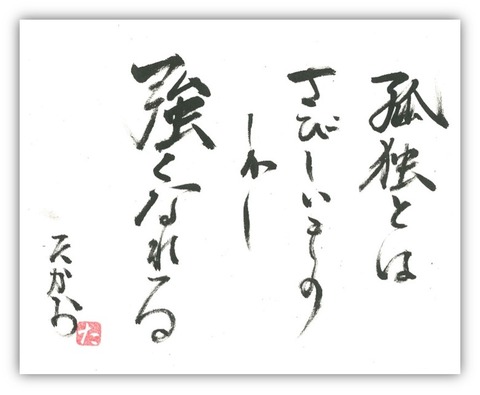 孤独とは
さびしいもの
しかし
強くなれる
たかお
た